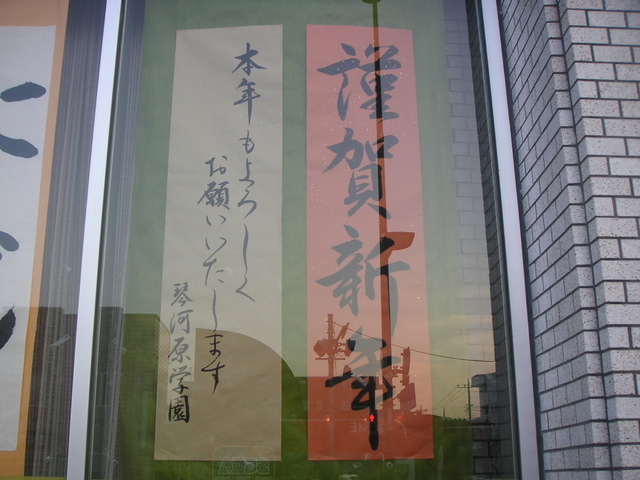 謹賀新年
本年もよろしく
お願いいたします
琴河原学園